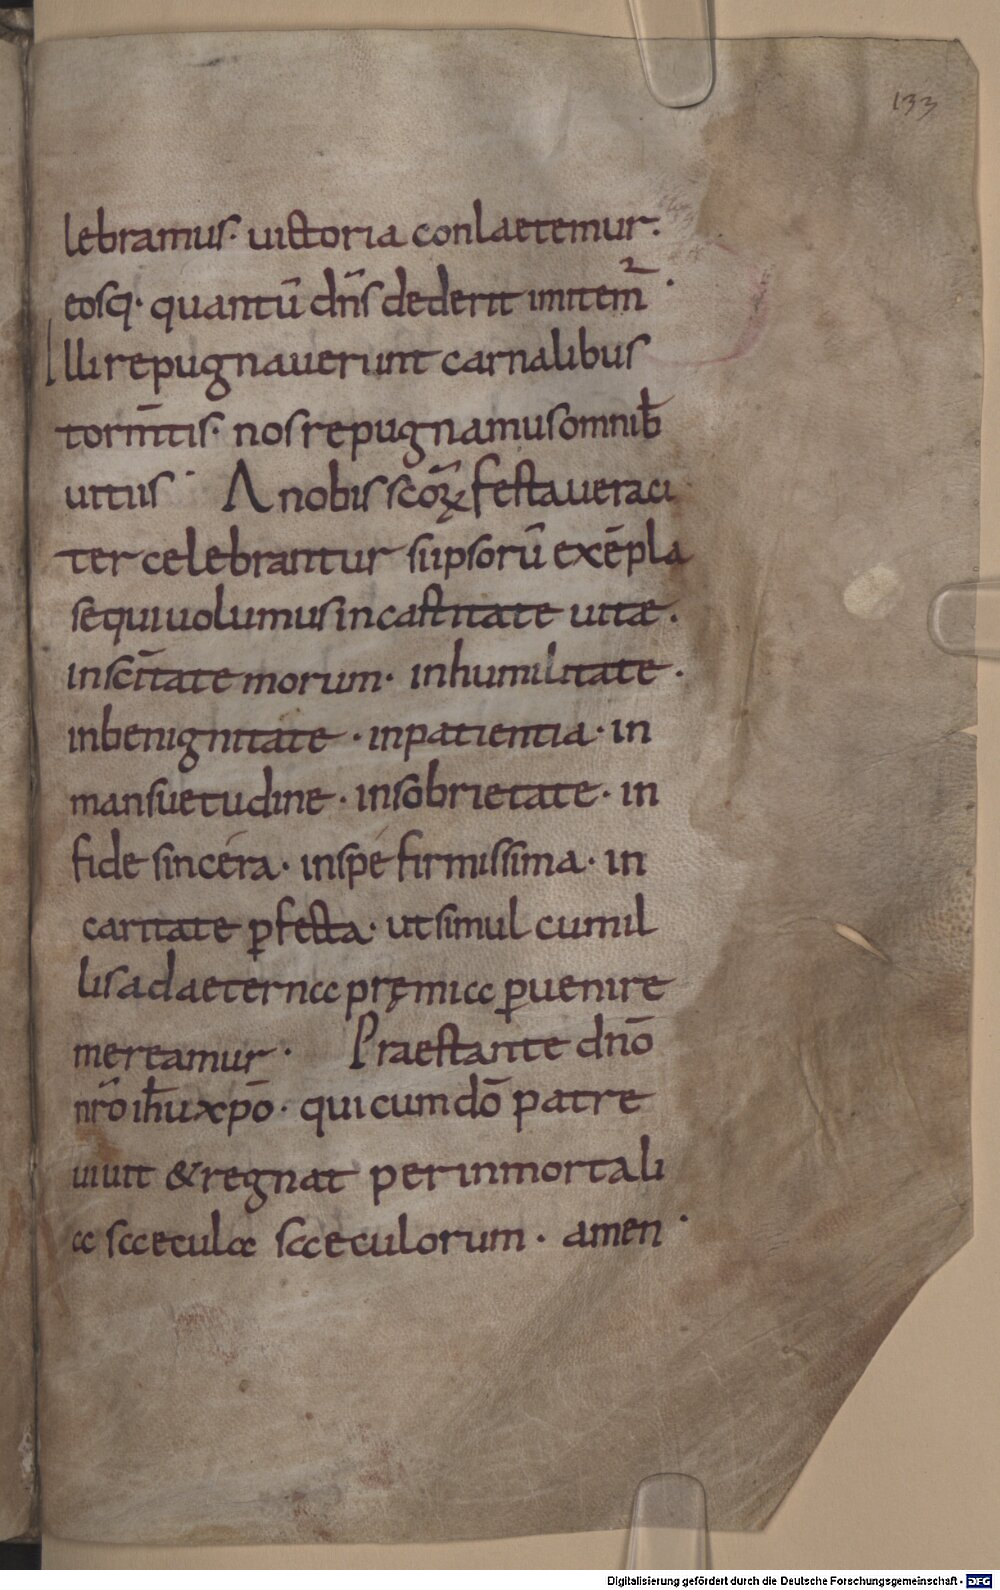 133
lebramus· uictoria conlaetemur·
eosq· quantū dn̄s dederit imitem̄²·
Illi repugnauerunt carnalibus
torm̄tis· nos repugnamus omnib̄
uitiis· A nobis scōꝝ festa ueraci
ter celebrantur si ipsorū exēpla
sequi uolumus in castitate uitae·
in scītate morum· in humilitate·
in benignitate· in patientia· in
mansuetudine· in sobrietate· in
fide sincera· in spe firmissima· in
caritate ꝑfecta· ut simul cum il
lis ad aeterna pręmia ꝑuenire
mereamur· Praestante dn̄o
nr̄o ihū xp̄o· qui cum dō patre
uiuit & regnat per inmortali
a saecula saeculorum· amen·
Digitalisierung gefördert durch die Deutsche Forschungsgemeinschaft - DFG